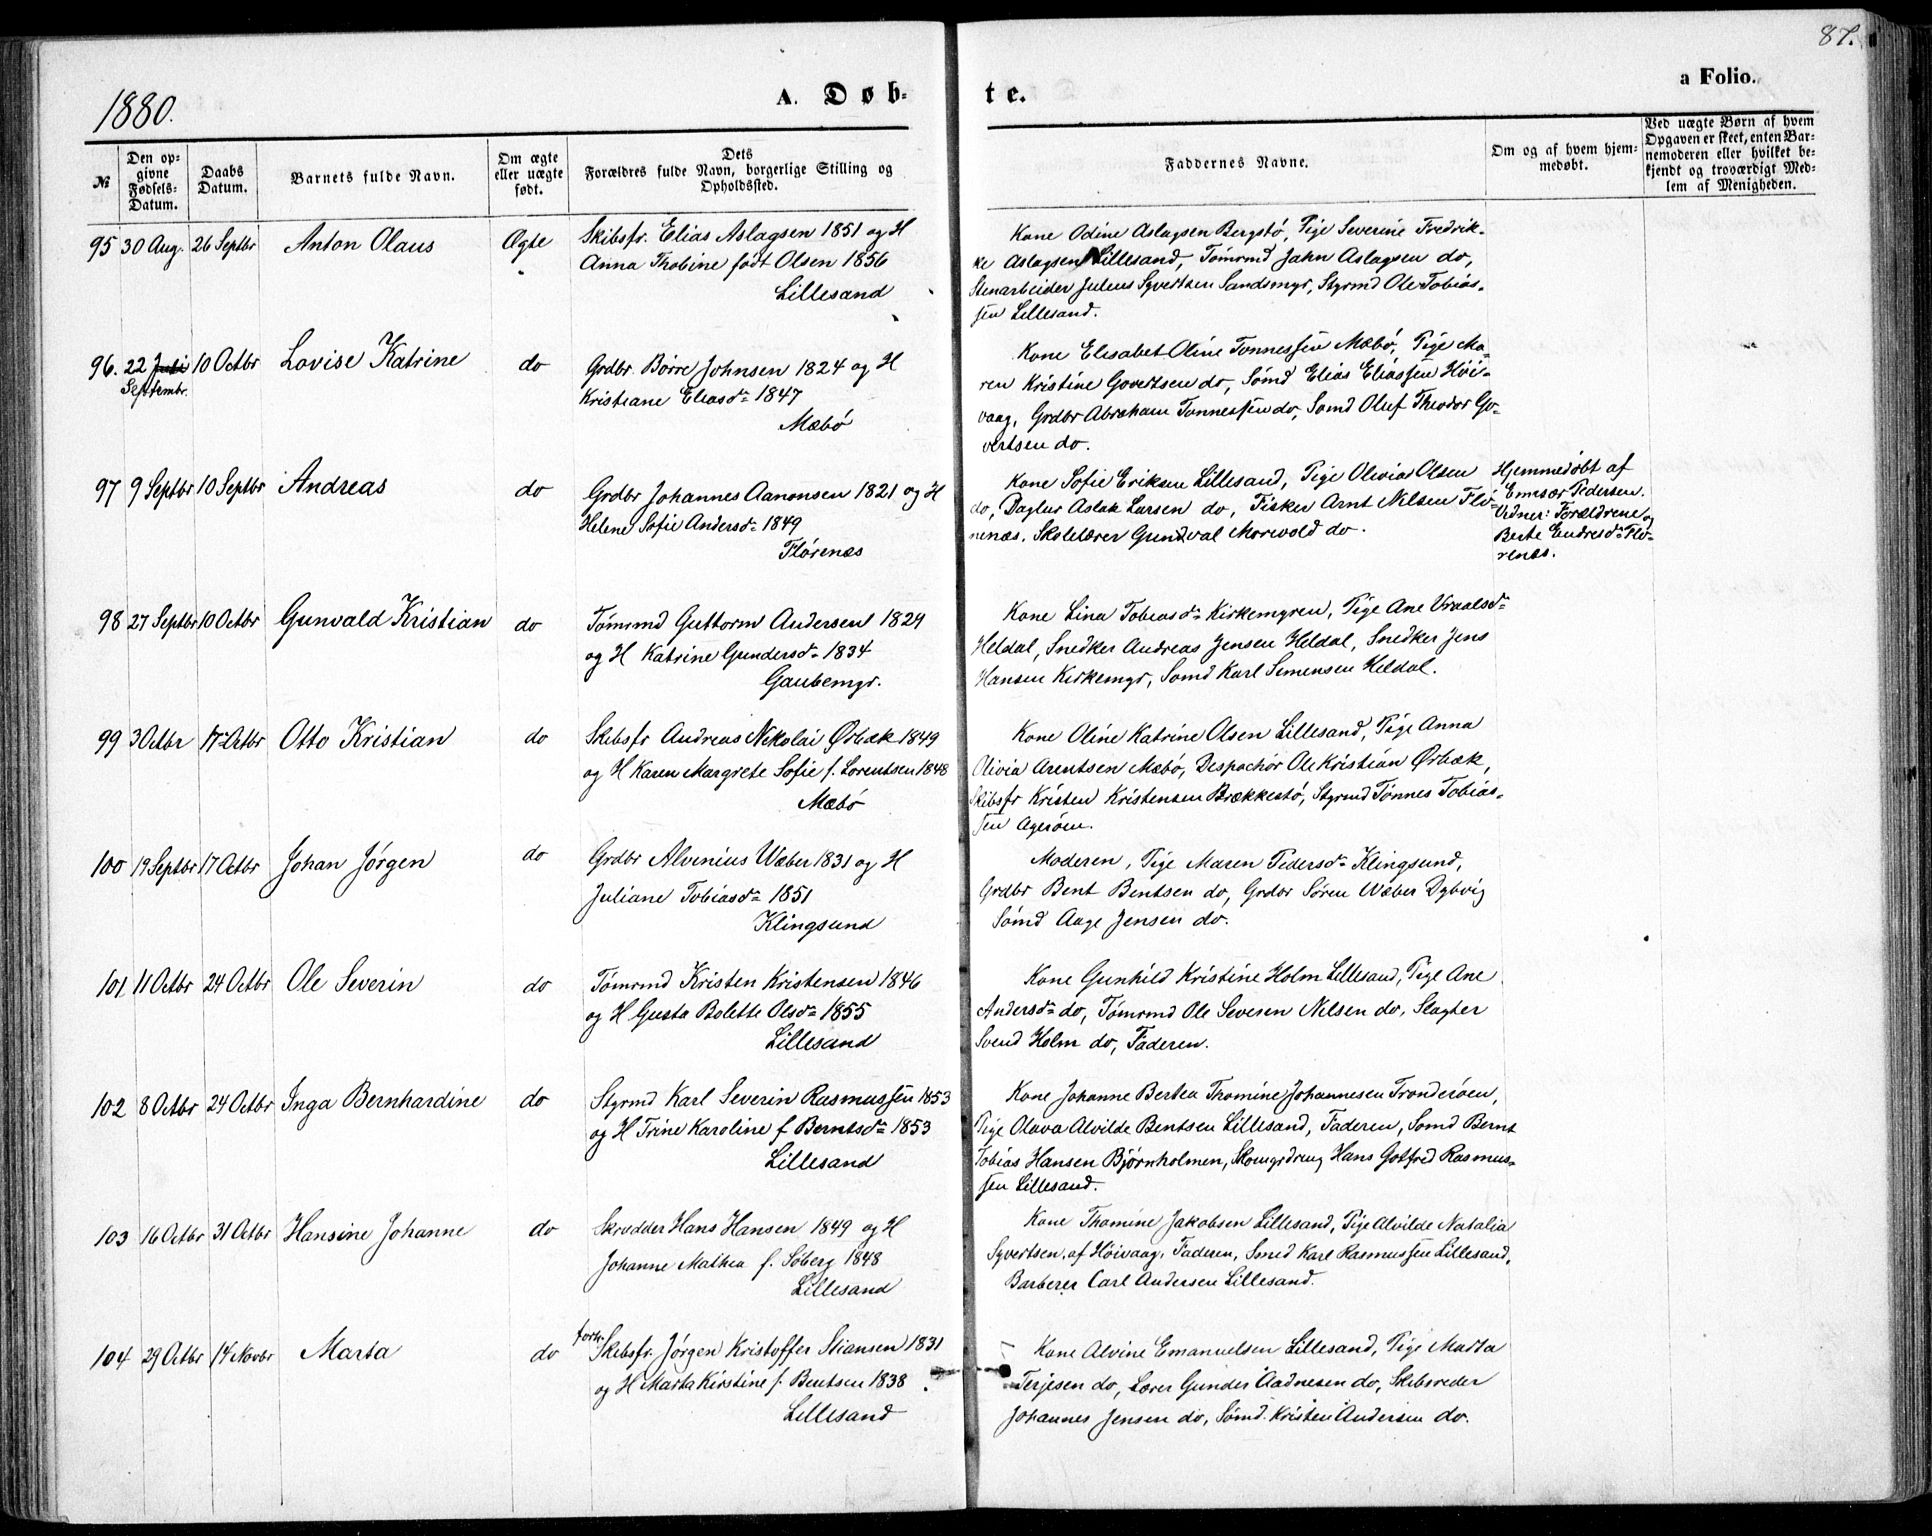 1880.
A. Døb-
te.
87.
a Folio.
№
Den op-
givne
Fødsels-
Datum.
Daabs
Datum.
Barnets fulde Navn.
Om ægte
eller uægte
født.
Dets
Forældres fulde Navn, borgerlige Stilling og
Opholdssted.
Faddernes Navne.
Om og af hvem hjem-
medøbt.
Ved uægte Børn af hvem
Opgaven er skeet, enten Bar-
nemoderen eller hvilket be-
kjendt og troværdigt Med-
lem af Menigheden.
95 30 Aug. 26 Septbr Anton Olaus Ægte
Skibsfr. Elias Aslagsen 1851 og H
Anna Thobine født Olsen 1856
Lillesand
Kone Odine Aslagsen Bergstø, Pige Severine Fredrik-
ke Aslagsen Lillesand, Tømrmd Jahn Aslagsen do,
Stenarbeider Julius Syvertsen Sandsmyr, Styrmd Ole Tobias-
sen Lillesand.
96. 22 Juli 10 Octbr Lovise Katrine do
Septembr.
Grdbr. Börre Johnsen 1824 og H
Kristiane Eliasdr 1847
Mæbø
Kone Elisabet Oline Tønnessen Mæbø, Pige Ma-
ren Kristine Govertsen do, Sømd Elias Eliassen Høi-
vaag, Grdbr Abraham Tønnessen do, Sømd Oluf Theodor Go-
vertsen do.
97 9 Septbr 10 Septbr Andreas do
Grdbr Johannes Aanonsen 1821 og H
Helene Sofie Andersdr 1849
Flørenæs
Kone Sofie Eriksen Lillesand, Pige Olivia Olsen
do, Daglnr Aslak Larsen do, Fisker Arnt Nilsen Flø-
renæs, Skolelærer Gundval Morvold do.
Hjemmedøbt af
Ennsær Pedersen.
Vidner: Forældrene og
Berte Endresdr Flø-
renæs.
98 27 Septbr 10 Octbr Gunvald Kristian do
Tømrmd Guttorm Andersen 1824
og H Katrine Gundersdr 1834
Gaubemyr.
Kone Lina Tobiasdr Kirkemyren, Pige Ane Vraalsdr
Heldal, Snedker Andreas Jensen Heldal, Snedker Jens
Hansen Kirkemyr, Sømd Karl Simensen Heldal.
99 3 Octbr 17 Octbr Otto Kristian do
Skibsfr Andreas Nikolai Ørbæk 1849
og H Karen Margrete Sofie f. Lorentsen 1848
Mæbø
Kone Oline Katrine Olsen Lillesand, Pige Anna
Olivia Arentsen Mæbø, Despachør Ole Kristian Ørbæk,
Skibsfr Kristen Kristensen Brækkestø, Styrmd Tønnes Tobias-
sen Agerøen.
100 19 Septbr 17 Octbr Johan Jørgen do
Grdbr Alvinius Wæber 1831 og H
Juliane Tobiasdr 1851
Klingsund
Moderen, Pige Maren Pedersdr Klingsund,
Grdbr Bent Bentsen do, Grdbr Søren Wæber Dybvig
Sømd Aage Jensen do.
101 11 Octbr 24 Octbr Ole Severin do
Tømrmd Kristen Kristensen 1846
og H Gusta Bolette Olsdr 1855
Lillesand
Kone Gunhild Kristine Holm Lillesand, Pige Ane
Andersdr do, Tømrmd Ole Severin Nilsen do, Slagter
Svend Holm do, Faderen.
102 8 Octbr 24 Octbr Inga Bernhardine do
Styrmd Karl Severin Rasmussen 1853
og H Trine Karoline f Berntsdr 1853
Lillesand
Kone Johanne Bertea Thomine Johannesen Tronderøen,
Pige Olava Alvilde Bentsen Lillesand, Faderen, Sømd Bernt
Tobias Hansen Bjørnholmen, Skomgrdreng Hans Gotfred Rasmus-
sen Lillesand.
103 16 Octbr 31 Octbr Hansine Johanne do
Skrædder Hans Hansen 1849 og H
Johanne Mathea f. Söberg 1848
Lillesand
Kone Thomine Jakobsen Lillesand, Pige Alvilde Natalia
Syvertsen af Høivaag, Faderen, Smed Karl Rasmussen Lillesand,
Barberer Carl Andersen Lillesand.
104 29 Octbr 14 Novbr Marta do
forh.
Skibsfr. Jørgen Kristoffer Stiansen 1831
og H Marta Kirstine f. Bentsen 1838
Lillesand
Kone Alvine Emanuelsen Lillesand, Pige Marta
Terjesen do, Lærer Gunder Aadnesen do, Skibsreder
Johannes Jensen do, Sømd. Kristen Andersen do.